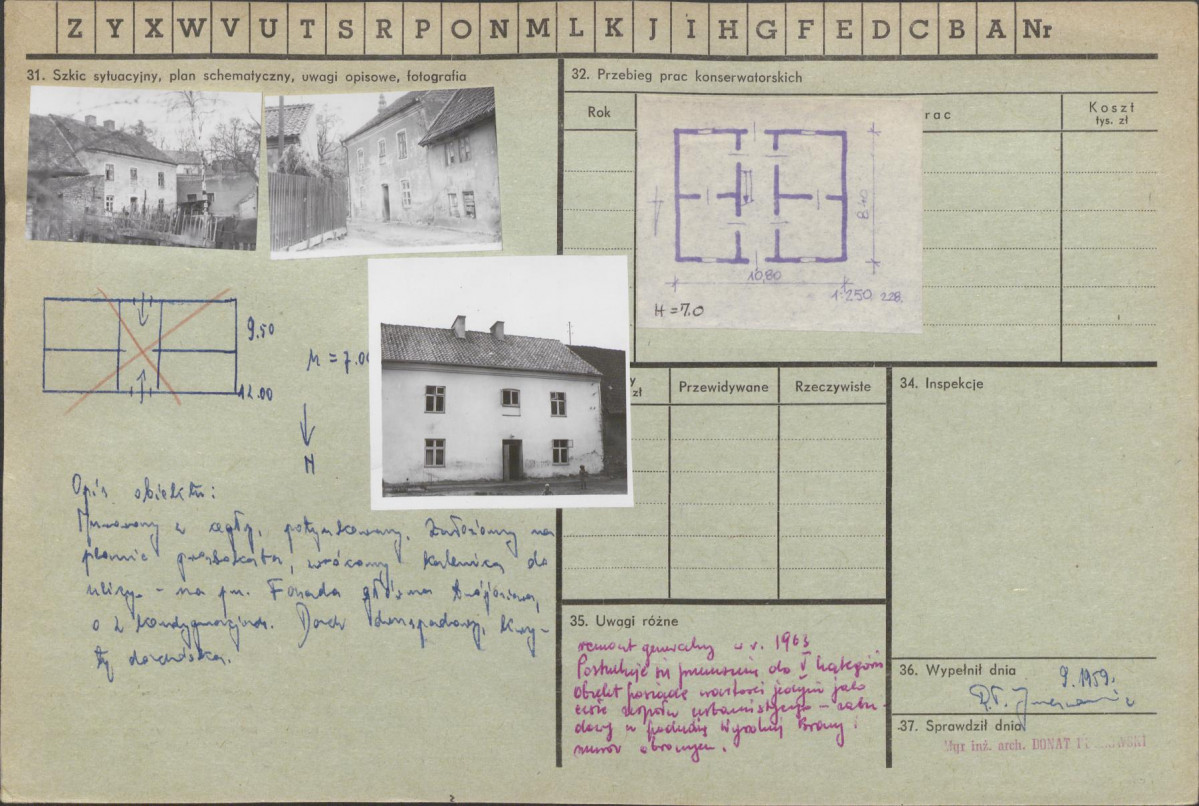 Z Y X W V U T S R P O N M L K J I H G F E D C B A Nr
31. Szkic sytuacyjny, plan schematyczny, uwagi opisowe, fotografia
9.50
12.00
H = 7.0
N
Opis obiektu:
Murowany z cegły, potynkowany. Założony na
planie prostokąta, zwrócony kalenicą do
ulicy - na pn. Fasada główna trójosiowa,
o 2 kondygnacjach. Dach dwuspadowy, kry-
ty dachówką.
32. Przebieg prac konserwatorskich
Rok
rac
Koszt
tys. zł
8.40
10,80
1:250 228.
H = 7.0
y
zł
Przewidywane
Rzeczywiste
34. Inspekcje
35. Uwagi różne
remont generalny w r. 1963
Postuluje się przeniesienie do V kategorii
Obiekt posiada wartości jedynie jako
część zespołu urbanistycznego - zabu-
dowy w pobliżu Wysokiej Bramy i
murów obronnych.
36. Wypełnił dnia
9.1959.
37. Sprawdził dnia
Mgr inż. arch. DONAT